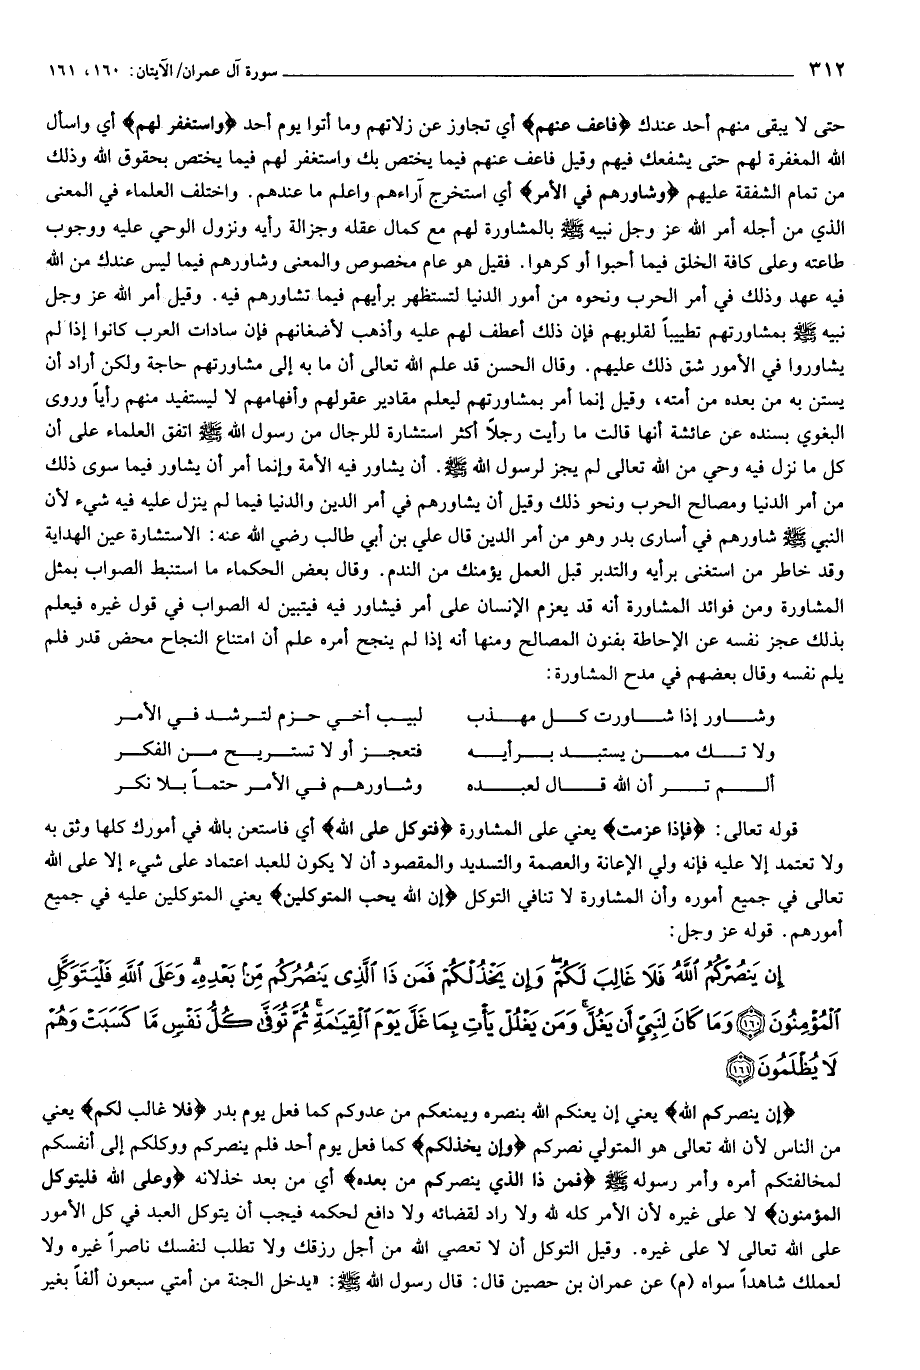 ٣١٢ سورة آل عمران/ الآيتان: ١٦٠، ١٦١
حتى لا يبقى منهم أحد عندك ﴿فاعف عنهم﴾ أي تجاوز عن زلاتهم وما أتوا يوم أحد ﴿واستغفر لهم﴾ أي واسأل
الله المغفرة لهم حتى يشفعك فيهم وقيل فاعف عنهم فيما يختص بك واستغفر لهم فيما يختص بحقوق الله وذلك
من تمام الشفقة عليهم ﴿وشاورهم في الأمر﴾ أي استخرج آراءهم واعلم ما عندهم. واختلف العلماء في المعنى
الذي من أجله أمر الله عز وجل نبيه ﷺ بالمشاورة لهم مع كمال عقله وجزالة رأيه ونزول الوحي عليه ووجوب
طاعته وعلى كافة الخلق فيما أحبوا أو كرهوا. فقيل هو عام مخصوص والمعنى وشاورهم فيما ليس عندك من الله
فيه عهد وذلك في أمر الحرب ونحوه من أمور الدنيا لتستظهر برأيهم فيما تشاورهم فيه. وقيل أمر الله عز وجل
نبيه ﷺ بمشاورتهم تطييباً لقلوبهم فإن ذلك أعطف لهم عليه وأذهب لأضغانهم فإن سادات العرب كانوا إذا لم
يشاوروا في الأمور شق ذلك عليهم. وقال الحسن قد علم الله تعالى أن ما به إلى مشاورتهم حاجة ولكن أراد أن
يستن به من بعده من أمته، وقيل إنما أمر بمشاورتهم ليعلم مقادير عقولهم وأفهامهم لا ليستفيد منهم رأياً وروى
البغوي بسنده عن عائشة أنها قالت ما رأيت رجلاً أكثر استشارة للرجال من رسول الله ﷺ اتفق العلماء على أن
كل ما نزل فيه وحي من الله تعالى لم يجز لرسول الله ﷺ. أن يشاور فيه الأمة وإنما أمر أن يشاور فيما سوى ذلك
من أمر الدنيا ومصالح الحرب ونحو ذلك وقيل أن يشاورهم في أمر الدين والدنيا فيما لم ينزل عليه فيه شيء لأن
النبي ﷺ شاورهم في أسارى بدر وهو من أمر الدين قال علي بن أبي طالب رضي الله عنه: الاستشارة عين الهداية
وقد خاطر من استغنى برأيه والتدبر قبل العمل يؤمنك من الندم. وقال بعض الحكماء ما استنبط الصواب بمثل
المشاورة ومن فوائد المشاورة أنه قد يعزم الإنسان على أمر فيشاور فيه فيتبين له الصواب في قول غيره فيعلم
بذلك عجز نفسه عن الإحاطة بفنون المصالح ومنها أنه إذا لم ينجح أمره علم أن امتناع النجاح محض قدر فلم
يلم نفسه وقال بعضهم في مدح المشاورة:
وشاور إذا شاورت كل مهذب لبيب أخي حزم لترشد في الأمر
ولا تك ممن يستبد برأيه فتعجز أو لا تستريح من الفكر
ألم تر أن الله قال لعبده وشاورهم في الأمر حتماً بلا نكر
قوله تعالى: ﴿فإذا عزمت﴾ يعني على المشاورة ﴿فتوكل على الله﴾ أي فاستعن بالله في أمورك كلها وثق به
ولا تعتمد إلا عليه فإنه ولي الإعانة والعصمة والتسديد والمقصود أن لا يكون للعبد اعتماد على شيء إلا على الله
تعالى في جميع أموره وأن المشاورة لا تنافي التوكل ﴿إن الله يحب المتوكلين﴾ يعني المتوكلين عليه في جميع
أمورهم. قوله عز وجل:
إِن يَنصُرْكُمُ ٱللَّهُ فَلَا غَالِبَ لَكُمْ ۖ وَإِن يَخْذُلْكُمْ فَمَن ذَا ٱلَّذِى يَنصُرُكُم مِّنۢ بَعْدِهِۦ ۗ وَعَلَى ٱللَّهِ فَلْيَتَوَكَّلِ
ٱلْمُؤْمِنُونَ ﴿١٦٠﴾ وَمَا كَانَ لِنَبِىٍّ أَن يَغُلَّ ۚ وَمَن يَغْلُلْ يَأْتِ بِمَا غَلَّ يَوْمَ ٱلْقِيَـٰمَةِ ۚ ثُمَّ تُوَفَّىٰ كُلُّ نَفْسٍ مَّا كَسَبَتْ وَهُمْ
لَا يُظْلَمُونَ ﴿١٦١﴾
﴿إن ينصركم الله﴾ يعني إن يعنكم الله بنصره ويمنعكم من عدوكم كما فعل يوم بدر ﴿فلا غالب لكم﴾ يعني
من الناس لأن الله تعالى هو المتولي نصركم ﴿وإن يخذلكم﴾ كما فعل يوم أحد فلم ينصركم ووكلكم إلى أنفسكم
لمخالفتكم أمره وأمر رسوله ﷺ ﴿فمن ذا الذي ينصركم من بعده﴾ أي من بعد خذلانه ﴿وعلى الله فليتوكل
المؤمنون﴾ لا على غيره لأن الأمر كله لله ولا راد لقضائه ولا دافع لحكمه فيجب أن يتوكل العبد في كل الأمور
على الله تعالى لا على غيره. وقيل التوكل أن لا تعصي الله من أجل رزقك ولا تطلب لنفسك ناصراً غيره ولا
لعملك شاهداً سواه (م) عن عمران بن حصين قال: قال رسول الله ﷺ: «يدخل الجنة من أمتي سبعون ألفاً بغير